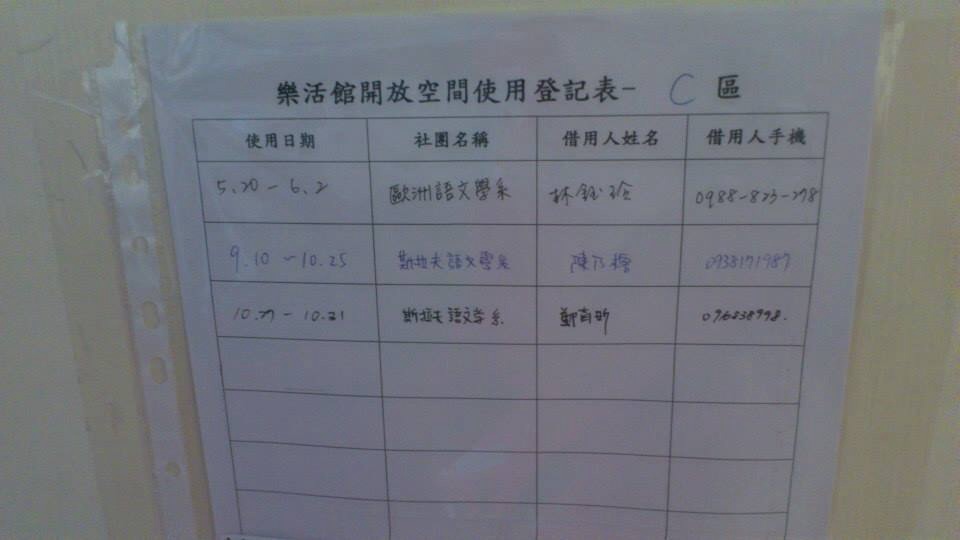 樂活館開放空間使用登記表- C 區
使用日期 社團名稱 借用人姓名 借用人手機
5.20 - 6.2 歐洲語文學系 林鈺玲
9.10 - 10.25 斯拉夫語文學系 0938171987
斯拉夫語文学系